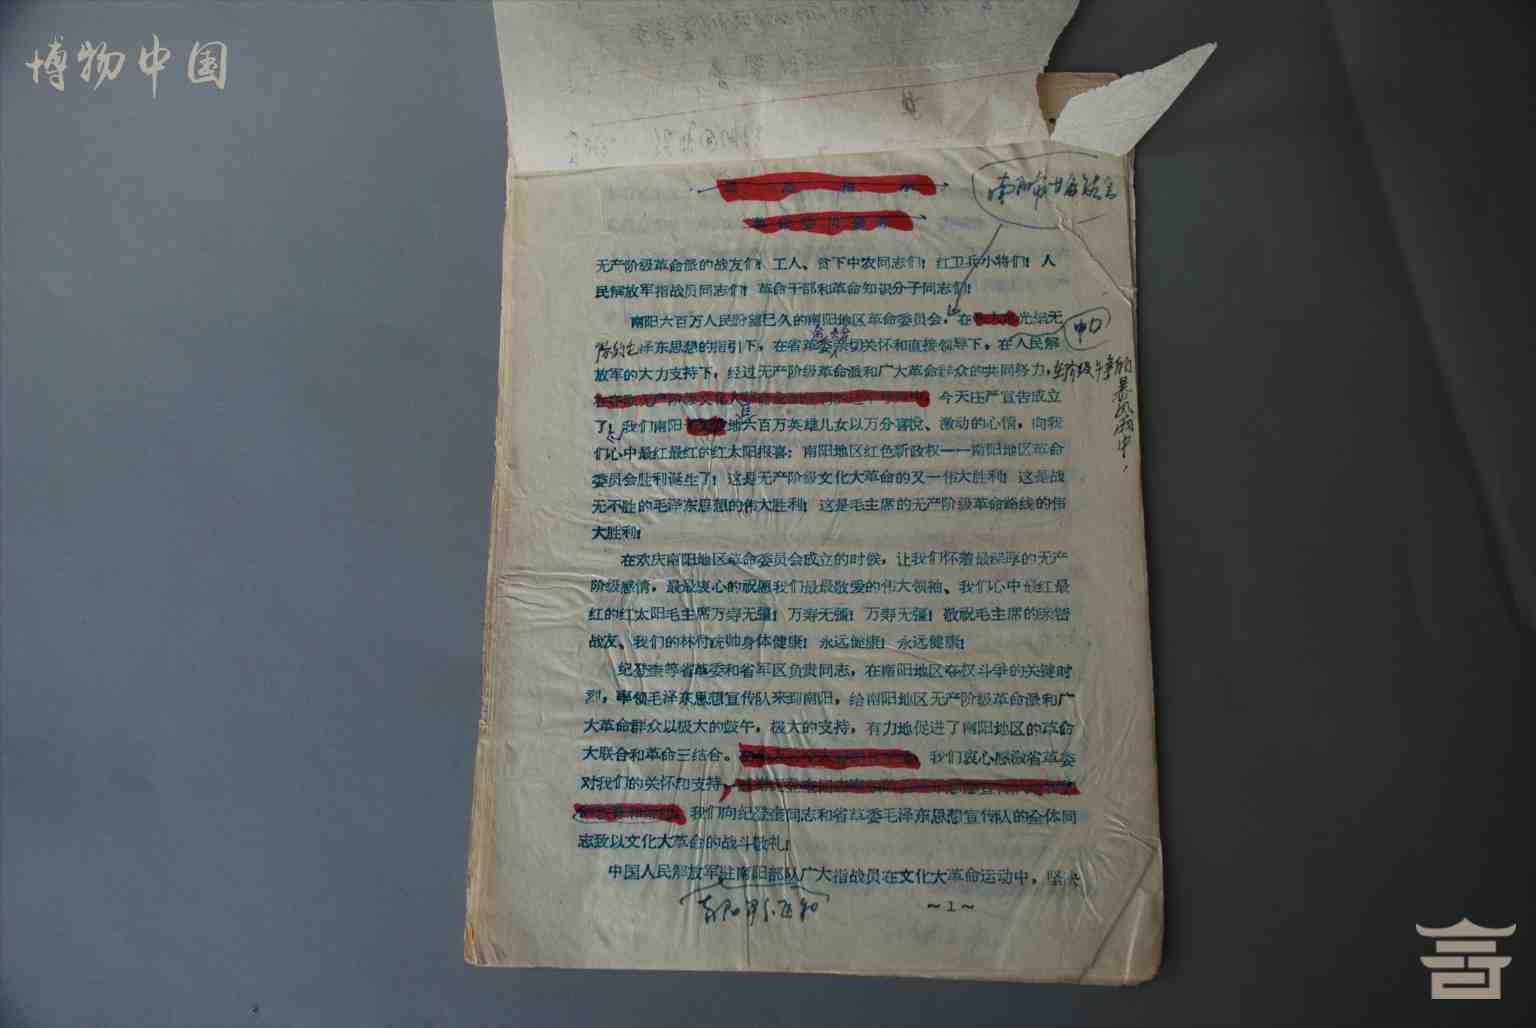 博物中国
无产阶级革命派的战友们！工人、贫下中农同志们！红卫兵小将们！人
民解放军指战员同志们！革命干部和革命知识分子同志们！
南阳六百万人民盼望已久的南阳地区革命委员会，在光焰无
泽东思想的指引下，在省革委亲切关怀和直接领导下，在人民解
放军的大力支持下，经过无产阶级革命派和广大革命群众的共同努力，
今天庄严宣告成立
了！我们南阳地六百万英雄儿女以万分喜悦、激动的心情，向我
们心中最红最红的红太阳报喜：南阳地区红色新政权——南阳地区革命
委员会胜利诞生了！这是无产阶级文化大革命的又一伟大胜利！这是战
无不胜的毛泽东思想的伟大胜利！这是毛主席的无产阶级革命路线的伟
大胜利！
在欢庆南阳地区革命委员会成立的时候，让我们怀着最深厚的无产
阶级感情，最最衷心的祝愿我们最最敬爱的伟大领袖、我们心中最红最
红的红太阳毛主席万寿无疆！万寿无疆！万寿无疆！敬祝毛主席的亲密
战友、我们的林付统帅身体健康！永远健康！永远健康！
纪登奎等省革委和省军区负责同志，在南阳地区夺权斗争的关键时
刻，率领毛泽东思想宣传队来到南阳，给南阳地区无产阶级革命派和广
大革命群众以极大的鼓午，极大的支持，有力地促进了南阳地区的革命
大联合和革命三结合。我们衷心感激省革委
对我们的关怀和支持，
我们向纪登奎同志和省革委毛泽东思想宣传队的全体同
志致以文化大革命的战斗敬礼！
中国人民解放军驻南阳部队广大指战员在文化大革命运动中，坚决
~1~
在阶级斗争的
暴风雨中，